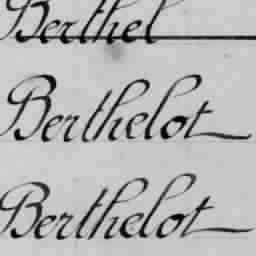 Berthel
Berthelot
Berthelot